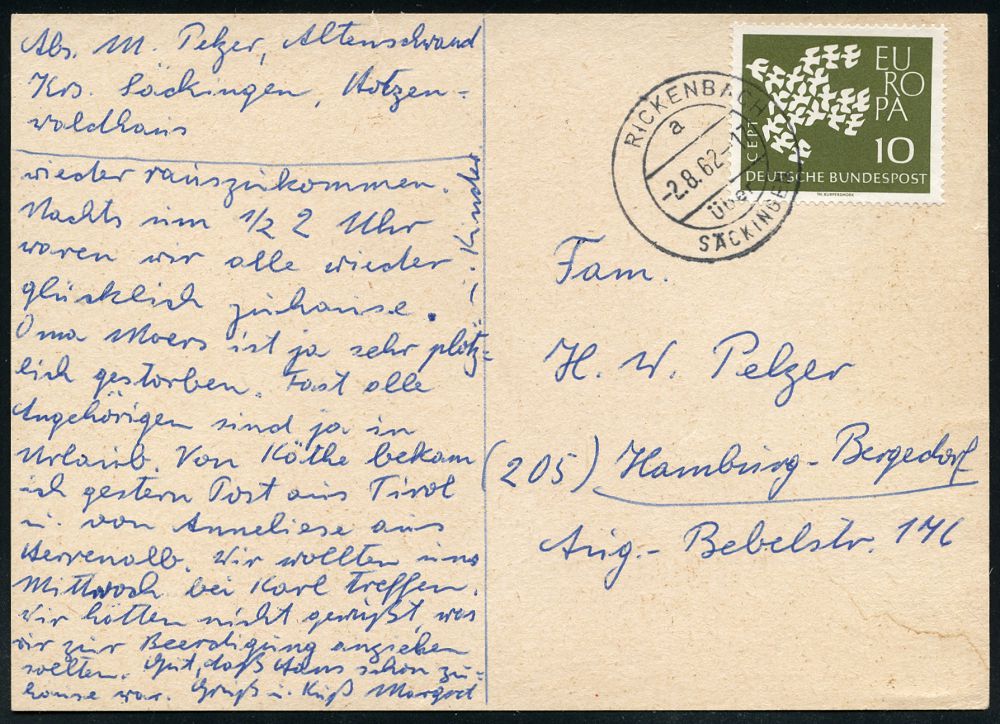 Abs. M. Pelzer, Altenschwand
Krs. Säckingen, Hotzen-
waldhaus
wieder rauszukommen.
Nachts um 1/2 2 Uhr
waren wir alle wieder
glücklich zuhause.
Oma Moers ist ja sehr plötz-
lich gestorben. Fast alle
Angehörigen sind ja in
Urlaub. Von Käthe bekam
ich gestern Post aus Tirol
u. von Anneliese aus
Herrenalb. Wir wollten uns
Mittwoch bei Karl treffen.
Wir hätten nicht gewußt, was
wir zur Beerdigung anziehen
sollten. Gut, daß Hans schon zu-
hause war. Gruß u. Kuß Margret
u. Kinder
RICKENBACH
a
-2.8.62-17
über
SÄCKINGEN
EU
RO
PA
CEPT
10
DEUTSCHE BUNDESPOST
Fam.
H. W. Pelzer
(205) Hamburg-Bergedorf
Aug.-Bebelstr. 176